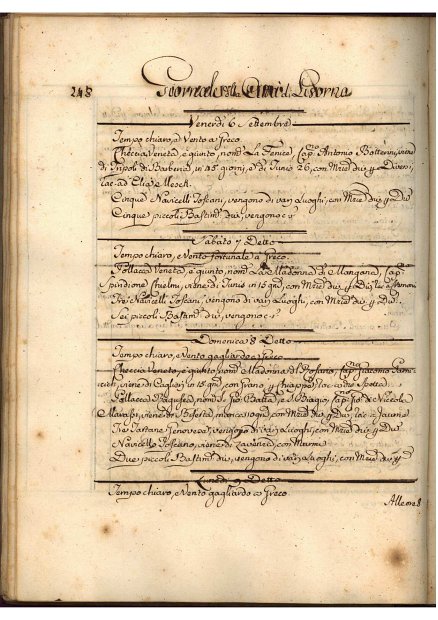 248 Giornale della Città di Livorno
Venerdi 6 Settembre
Tempo chiaro, e Vento a Greco
Checcia Veneta, è giunto, nom.ta La Fenice, Cap.o Antonio Botterini, viene
di Tripoli di Barberia, in 45 giorni, e di Tunis 26, con Merc. div. p. Diversi
rac. ad Elia
Cinque Navicelli Toscani, vengono di varj Luoghi, con Merc. div. p. Div.
Cinque piccoli Bastim. div. vengono c. s.
Sabato 7 Detto
Tempo chiaro, e Vento fortunale a Greco.
Pollacca Veneta, è giunto, nom.ta La Madonna di Cap.o
Spiridione viene di Tunis in 15 gni, con Merc. div. p. Div.
Tre Navicelli Toscani, vengono di varj Luoghi, con Merc. div. p. Div.
Sei piccoli Bastim. div. vengono c. s.
Domenica 8 Detto
Tempo chiaro, e Vento gagliardo a Greco
Checcia Veneta, è giunto, nom.ta Madonna del Rosario, Cap.o Giacomo
viene di Cagliari in 18 gni, con Grano, rac. a
Pollacca Ragusea, nom.ta S. Gio. Batta, e S. Biagio, Cap.o Gio. di Niccolò
viene da Biserta, in gni, con Merc. div. p. Div.
Tre Tartane Genovesi, vengono di varj Luoghi, con Merc. div. p. Div.
Navicello Toscano, viene di con Marmi
Due piccoli Bastim. div. vengono di varj Luoghi, con Merc. div. p.
Lunedi 9 Detto
Tempo chiaro, e Vento gagliardo a Greco
Alle ore 8